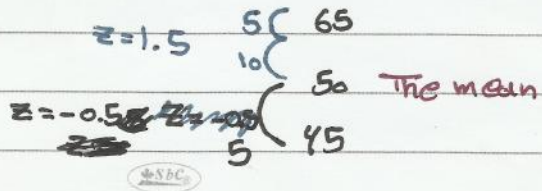 z=1.5 5 65
10
50 The mean
z=-0.5
5 45
SbC